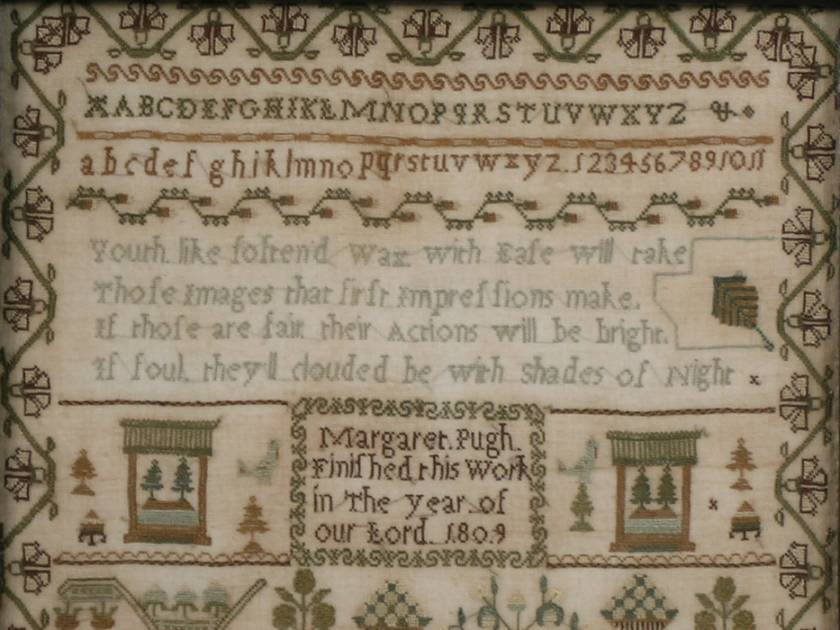 ABCDEFGHIKLMNOPQRSTUVWXYZ &
abcdefghiklmnopqrstuvwxyz.1234567891011
Youth like ſoftend Wax with Eaſe will take
Thoſe Images that firſt Impreſſions make.
If thoſe are fair their Actions will be bright.
If foul, they'll clouded be with Shades of Night
Margaret. Pugh.
Finiſhed this Work
in The year of
our Lord 1809